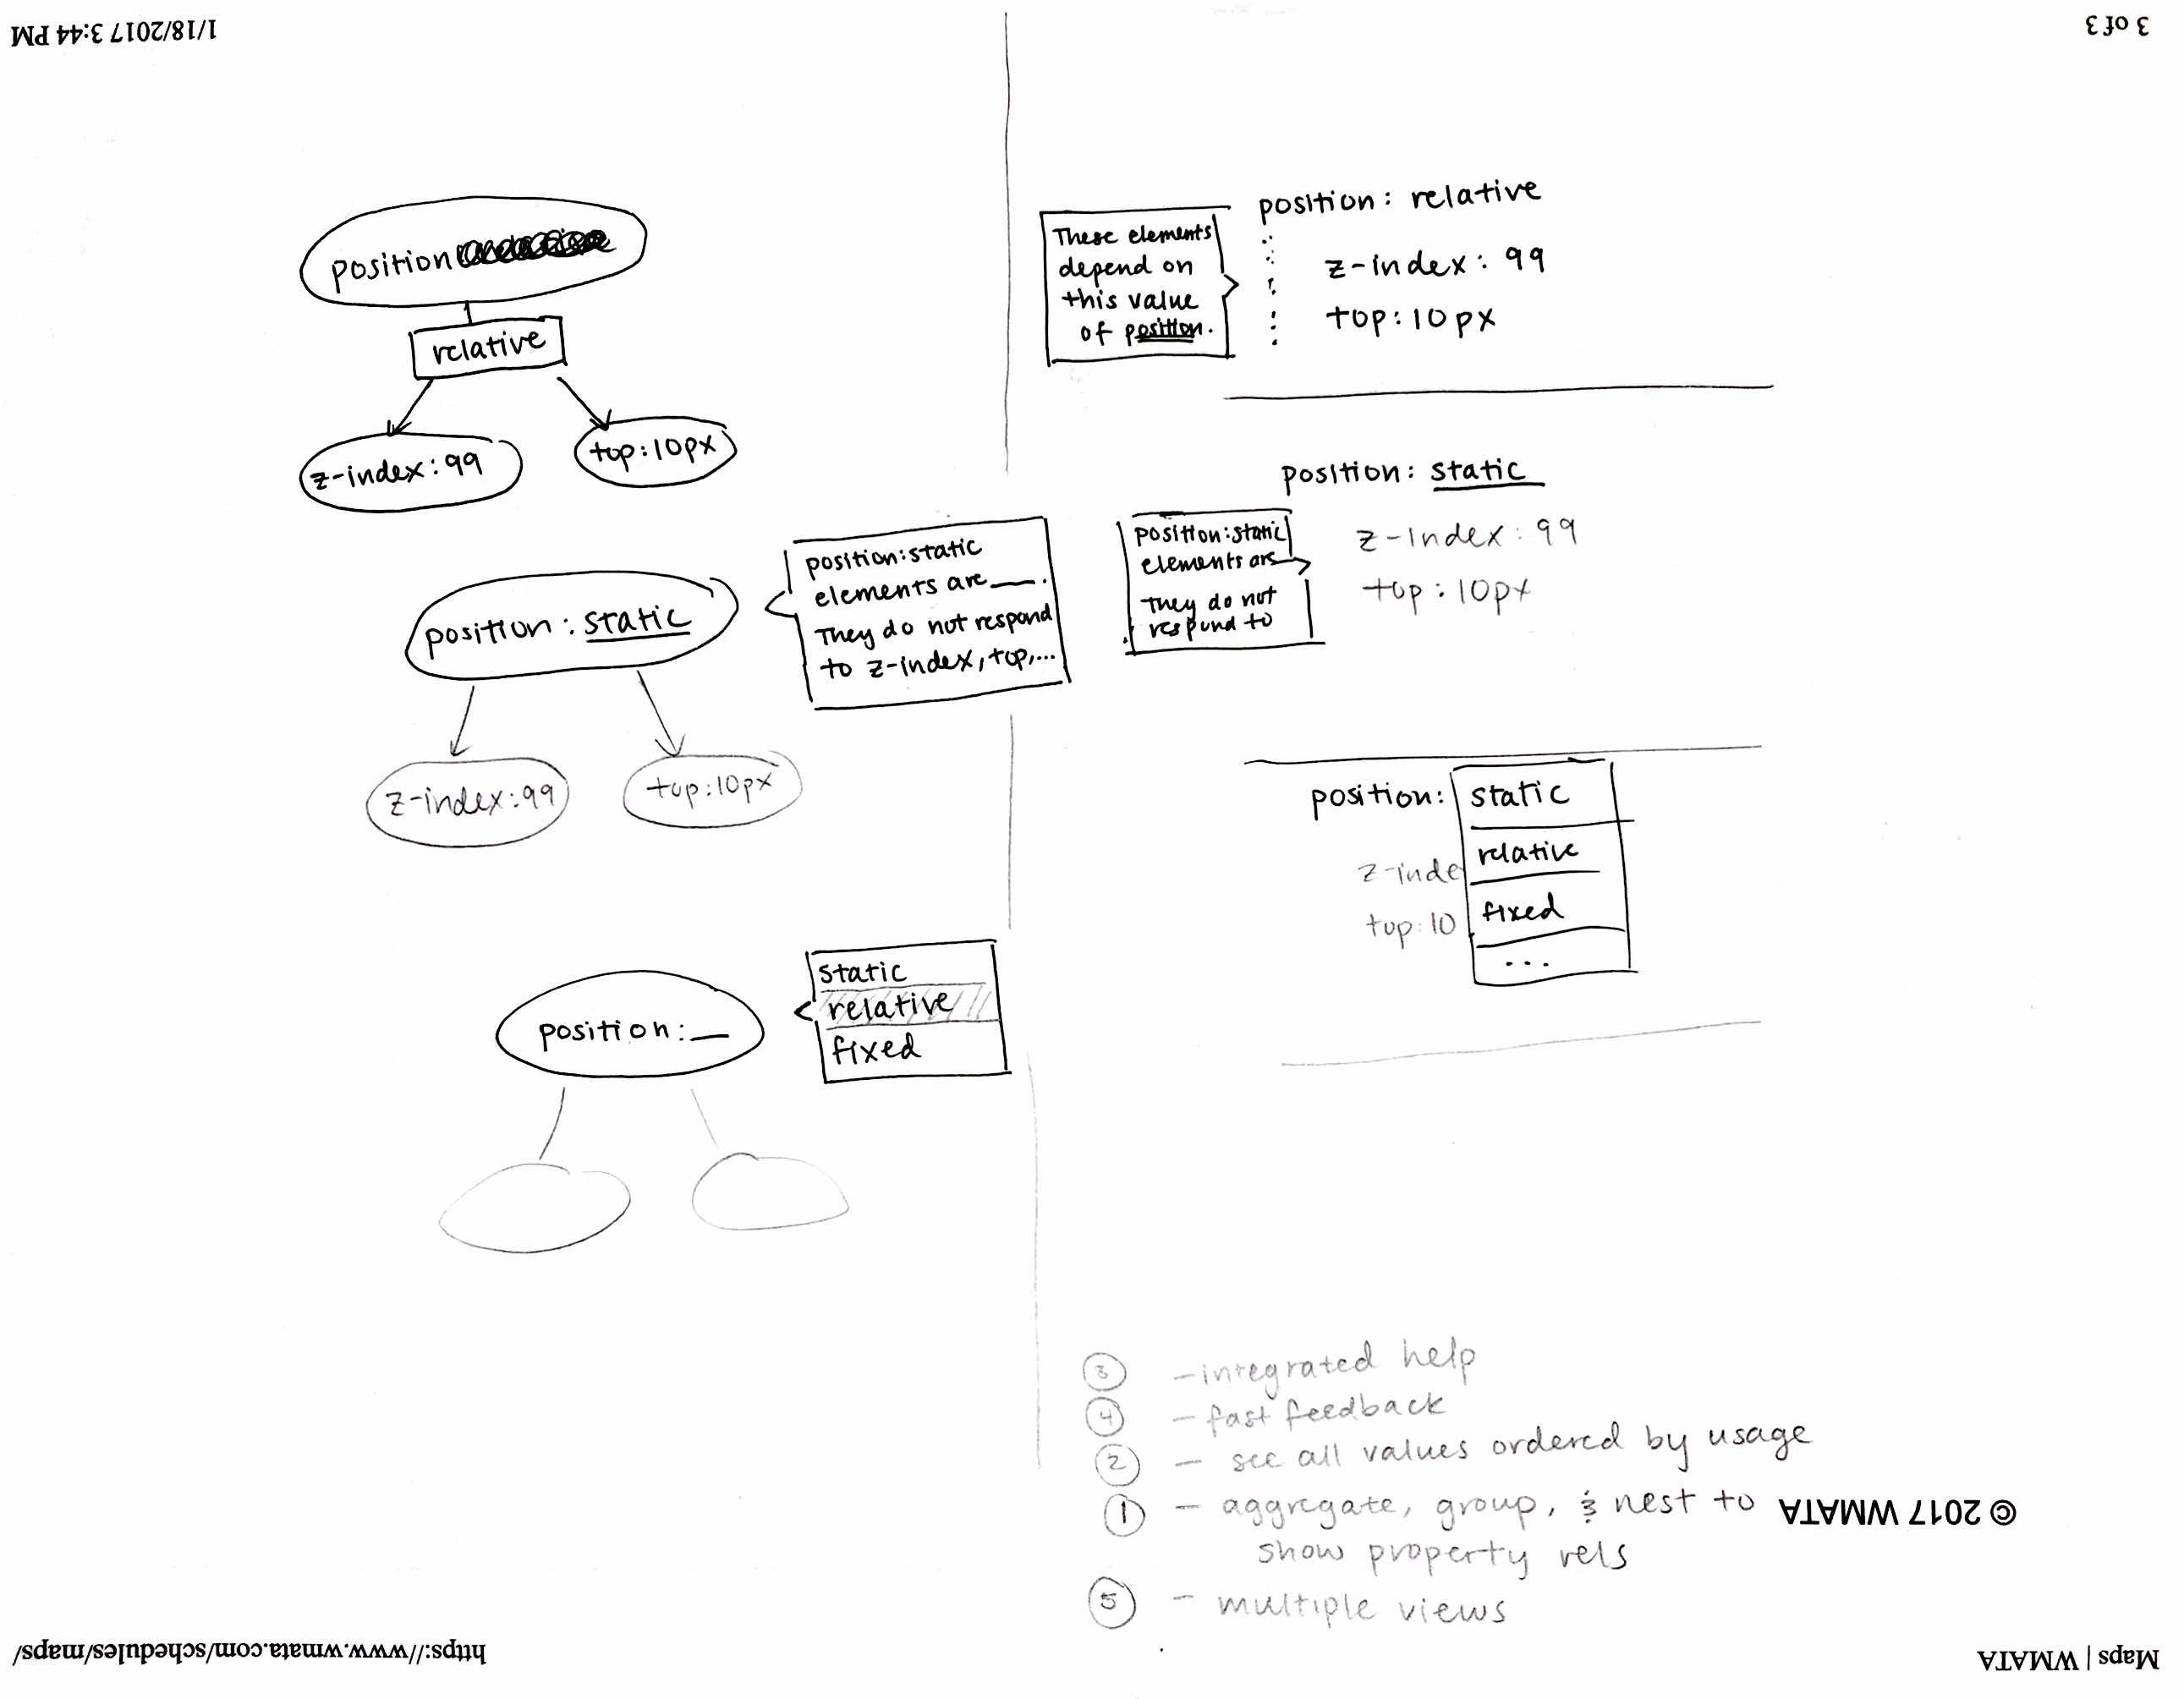 1/18/2017 3:44 PM
3 of 3
position
relative
z-index: 99
top: 10px
position: static
position: static
elements are ___.
They do not respond
to z-index, top, ...
z-index: 99
top: 10px
position: __
static
relative
fixed
These elements
depend on
this value
of position.
position: relative
z-index: 99
top: 10px
position: static
position: static
elements are
They do not
respond to
z-index: 99
top: 10px
position:
static
relative
fixed
...
z-inde
top: 10
3 - integrated help
4 - fast feedback
2 - see all values ordered by usage
1 - aggregate, group, & nest to
show property rels
5 - multiple views
© 2017 WMATA
https://www.wmata.com/schedules/maps/
Maps | WMATA